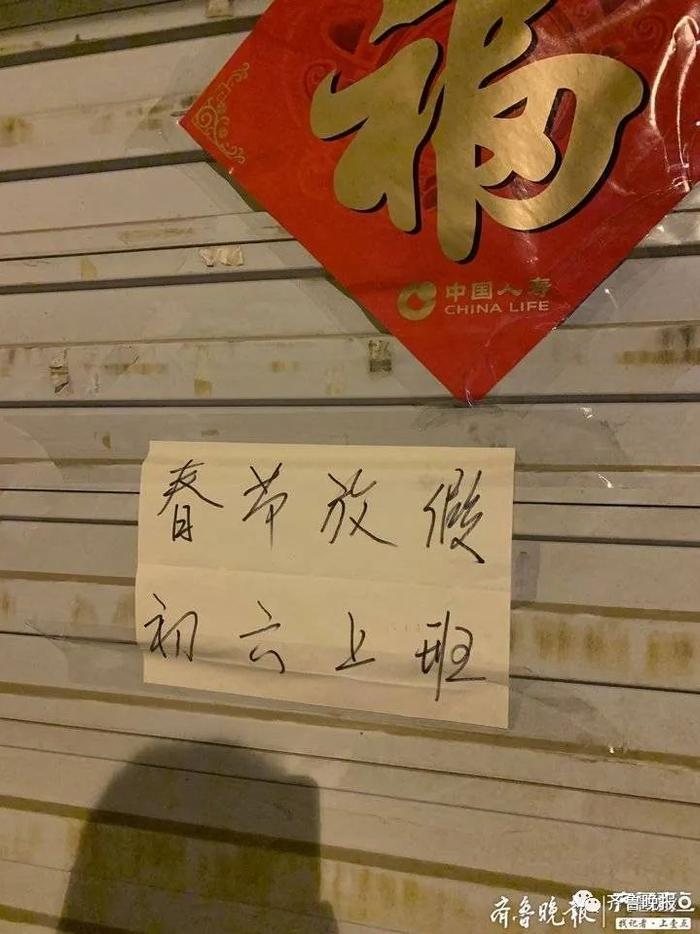 福
中国人寿
CHINA LIFE
春节放假
初六上班
齐鲁晚报
齐鲁晚报
找记者·上壹点